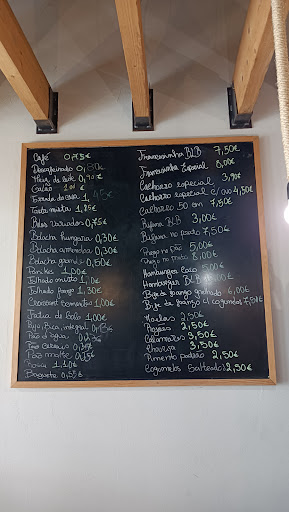 Café 0,75€
Descafeinado 0,80€
Meia de leite 0,90€
Galão 1,00€
Torrada da casa 1,45€
Tosta mista 1,85€
Bolos variados 0,75€
Bolacha hungara 0,30€
Bolacha amendoa 0,30€
Bolacha grande 0,50€
Panikes 1,00€
Folhado misto 1,00€
Folhado frango 1,30€
Croissant 1,00€
Fatia de bolo 1,00€
Pão, Bica, integral 0,18€
Pão d'agua
Pão cereais
Pão mafra
1,10€
Baguete 0,55€
Francesinha BLB 7,50€
Francesinha Especial 8,00€
Cachorro especial 3,90€
Cachorro especial c/ovo 4,50€
Cachorro 50 cm 7,50€
Bifana BLB 3,00€
Bifana no prato 7,50€
Prego no pão 5,00€
Prego no prato 8,00€
Hamburger Caso 5,00€
Hamburger BLB
Bife de frango grelhado 6,00€
Bife de frango c/ cogumelos 7,50€
Moelas 2,50€
Pregões 2,50€
Calamares 3,50€
Chouriça 3,50€
Pimento padrão 2,50€
Cogumelos salteados 2,50€